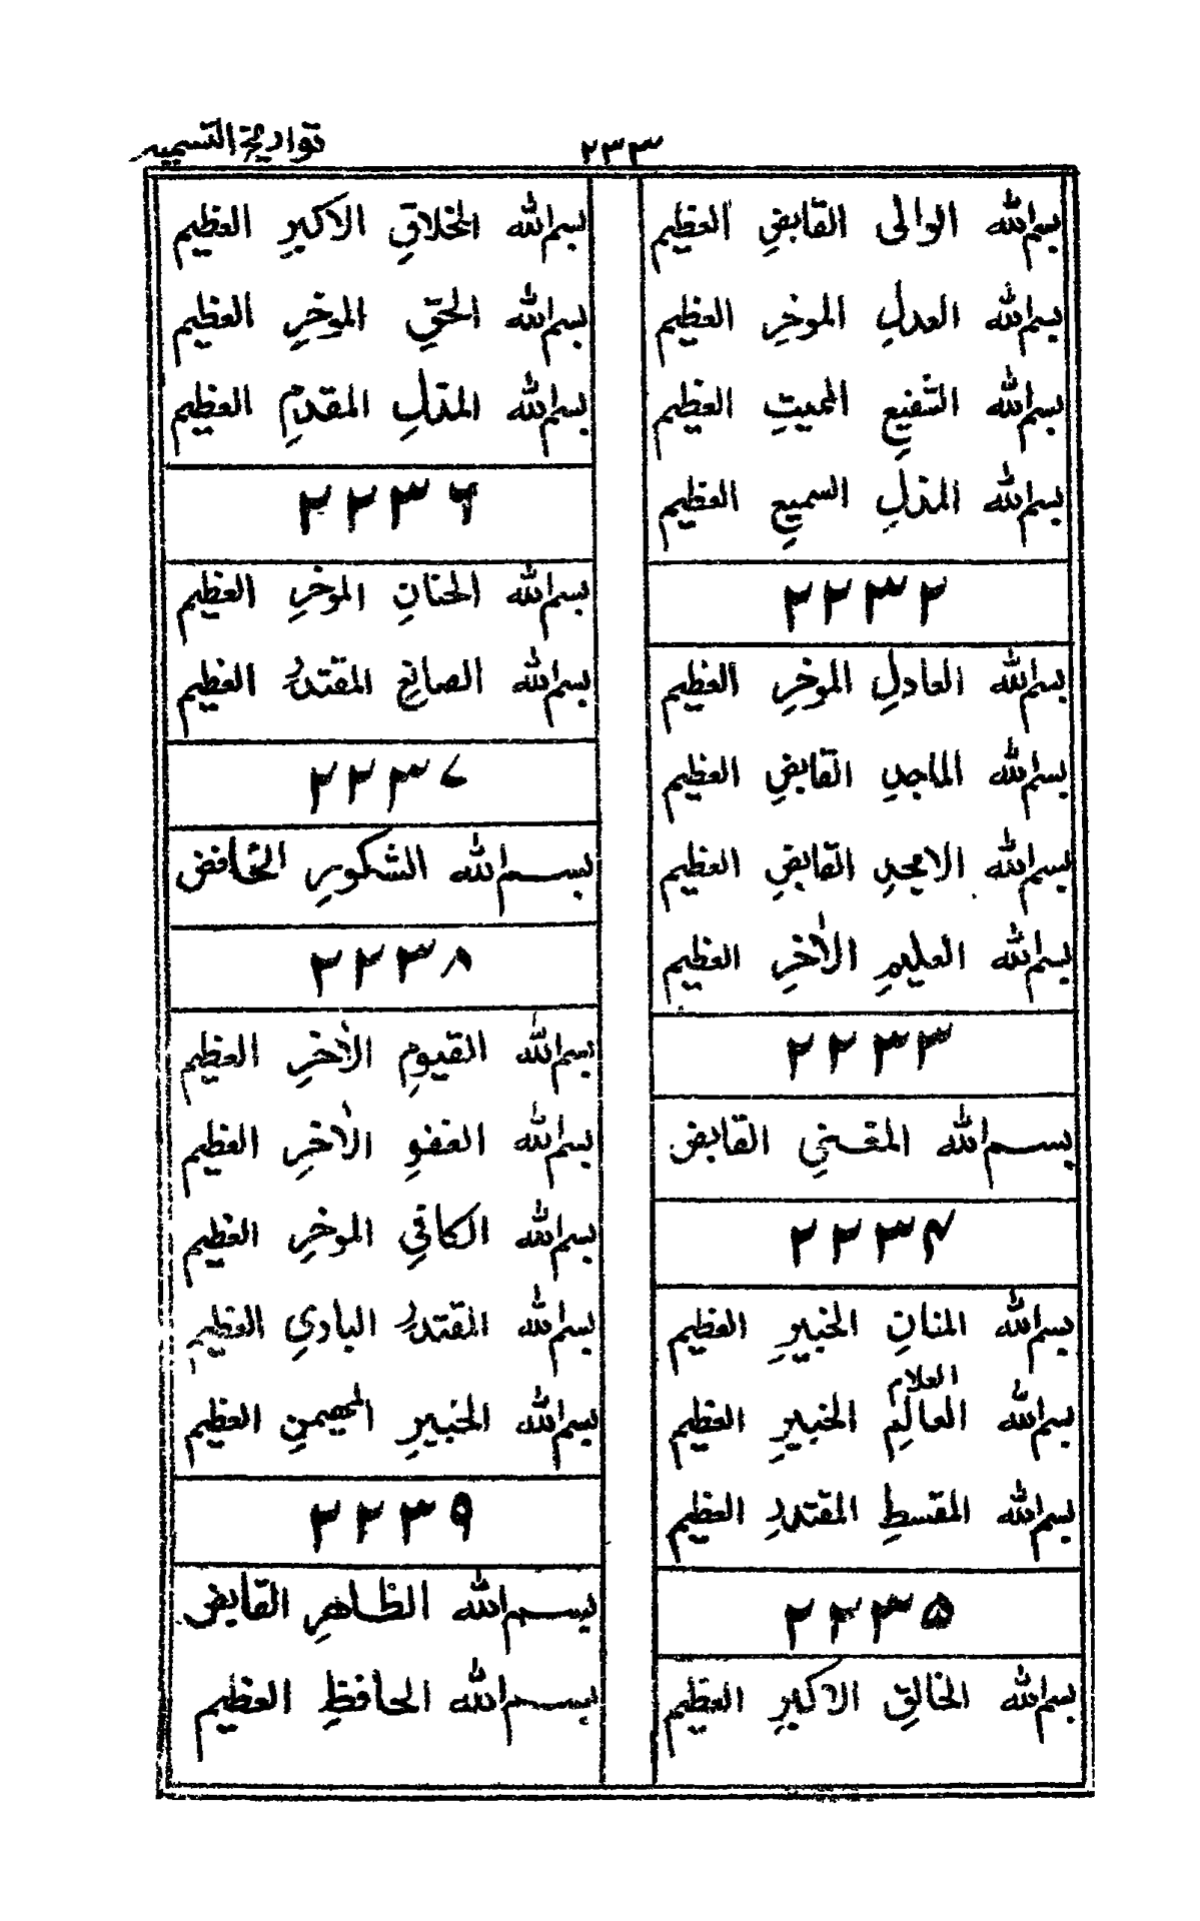 تواريخ التسميه
٢٣٣
بسم الله الوالى القابضِ العظيم
بسم الله العدلِ الموخرِ العظيم
بسم الله الشفيعِ المميتِ العظيم
بسم الله المذلِ السميعِ العظيم
٢٢٣٢
بسم الله العادلِ الموخرِ العظيم
بسم الله الماجدِ القابضِ العظيم
بسم الله الامجدِ القابضِ العظيم
بسم الله العليمِ الاٰخرِ العظيم
٢٢٣٣
بسم الله المغنيِ القابض
٢٢٣۴
بسم الله المنانِ الخبيرِ العظيم
العلام
بسم الله العالمِ الخبيرِ العظيم
بسم الله المقسطِ المقتدرِ العظيم
٢٢٣۵
بسم الله الخالقِ الاكبرِ العظيم
بسم الله الخلاقِ الاكبرِ العظيم
بسم الله الحقِ الموخرِ العظيم
بسم الله المذلِ المقدمِ العظيم
٢٢٣۶
بسم الله الحنانِ الموخرِ العظيم
بسم الله الصانعِ المقتدر العظيم
٢٢٣٧
بسم الله الشكورِ الخافض
٢٢٣٨
بسم الله القيومِ الاٰخرِ العظيم
بسم الله العفوِ الاٰخرِ العظيم
بسم الله الكافيِ الموخرِ العظيم
بسم الله المقتدر الباديِ العظيم
بسم الله الخبيرِ المهيمنِ العظيم
٢٢٣٩
بسم الله الظاهرِ القابض
بسم الله الحافظِ العظيم